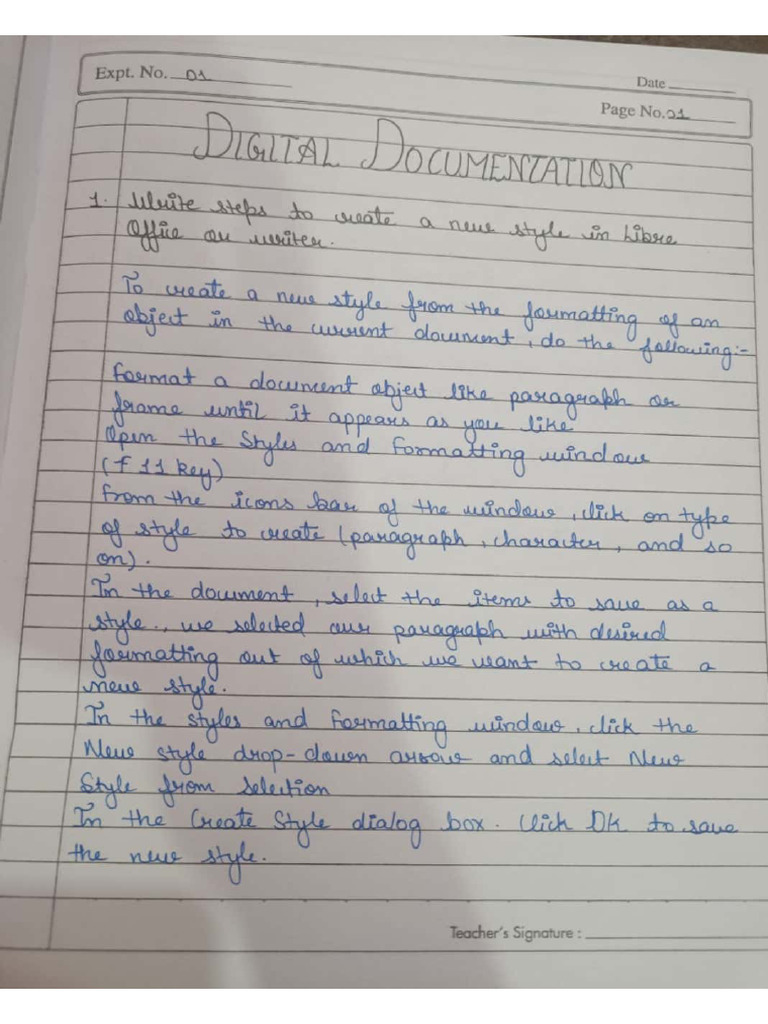 Expt. No. 01
Date
Page No. 01
DIGITAL DOCUMENTATION
1. Write steps to create a new style in Libre
Office our writer.
To create a new style from the formatting of an
object in the current document, do the following:-
Format a document object like paragraph or
frame until it appears as you like.
Open the Styles and Formatting window
(f 11 key)
From the icons bar of the window, click on type
of style to create (paragraph, character, and so
on).
In the document, select the items to save as a
style., we selected our paragraph with desired
formatting out of which we want to create a
new style.
In the styles and formatting window, click the
New style drop-down arrow and select New
Style from selection
In the Create Style dialog box. Click OK to save
the new style.
Teacher's Signature :